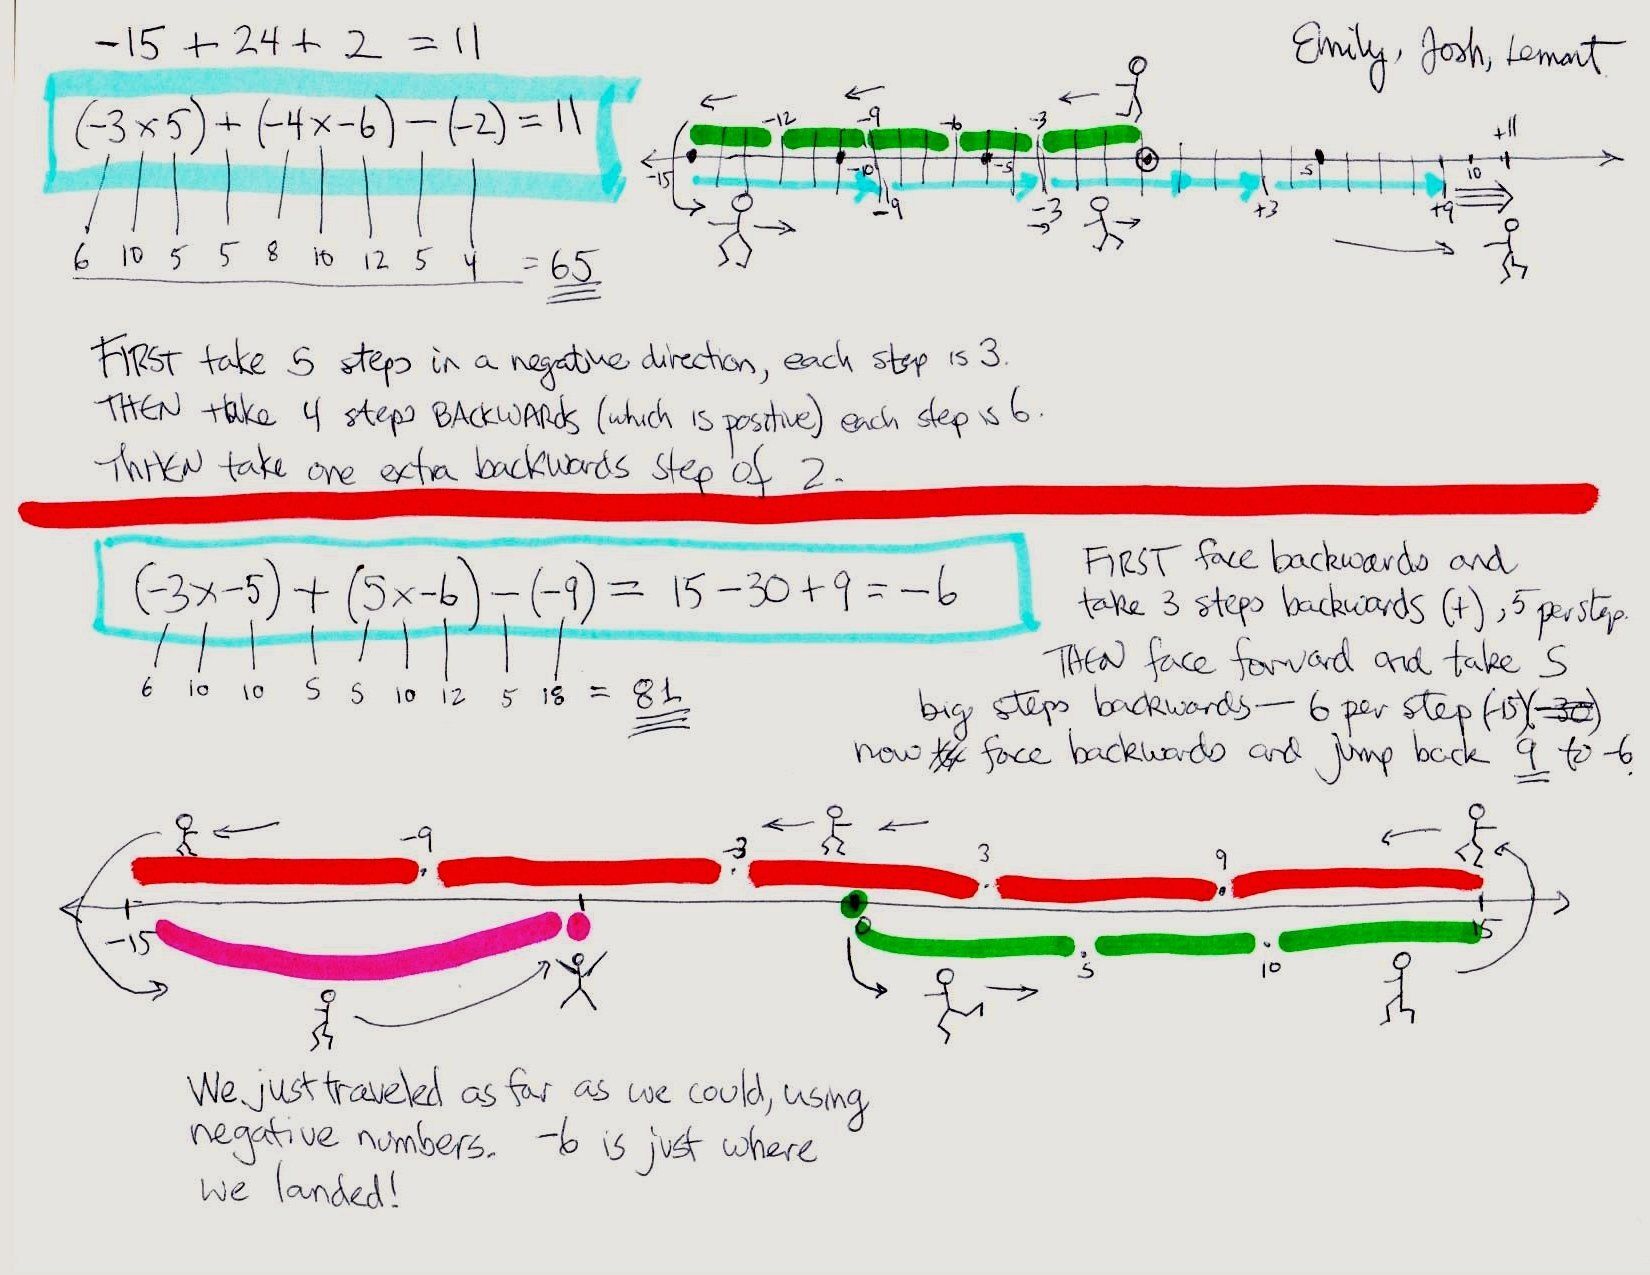 -15 + 24 + 2 = 11
Emily, Josh, Lemont
(-3 x 5) + (-4 x -6) - (-2) = 11
6 10 5 5 8 10 12 5 4 = 65
+11
-12 -9 -6 -3
-15 -10 -5 5 10
-9 -3 +3 +9
FIRST take 5 steps in a negative direction, each step is 3.
THEN take 4 steps BACKWARDS (which is positive) each step is 6.
THEN take one extra backwards step of 2.
(-3 x -5) + (5 x -6) - (-9) = 15 - 30 + 9 = -6
6 10 10 5 5 10 12 5 18 = 81
FIRST face backwards and
take 3 steps backwards (+), 5 per step.
THEN face forward and take 5
big steps backwards — 6 per step (-15) (-30)
now face backwards and jump back 9 to -6.
-9 -3 3 9
-15 0 15
5 10
We just traveled as far as we could, using
negative numbers. -6 is just where
we landed!